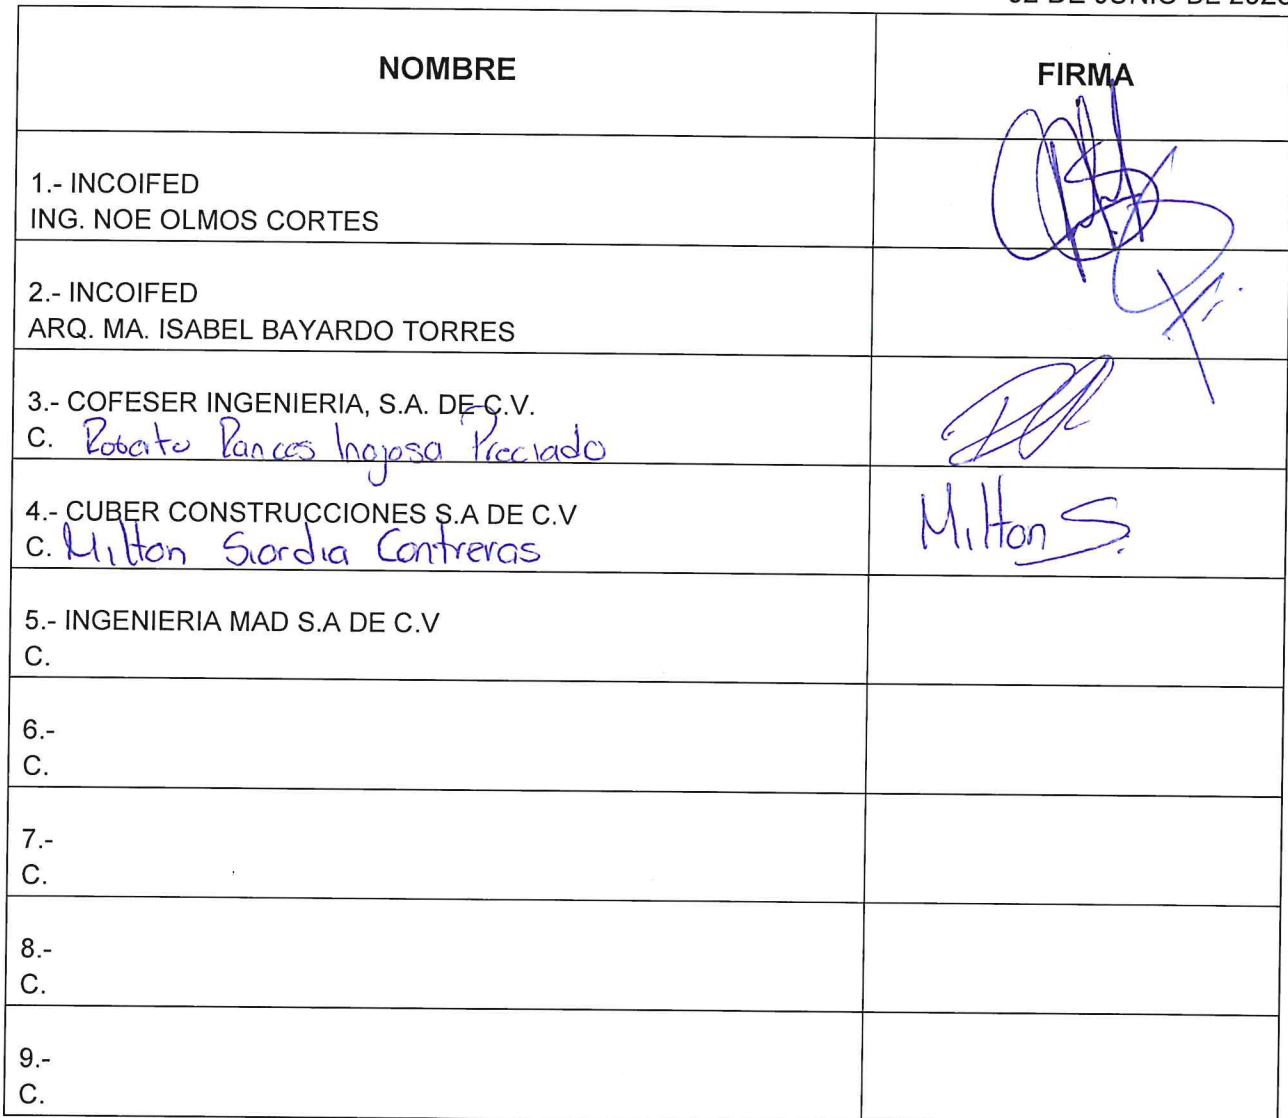 NOMBRE
FIRMA
1.- INCOIFED
ING. NOE OLMOS CORTES
2.- INCOIFED
ARQ. MA. ISABEL BAYARDO TORRES
3.- COFESER INGENIERIA, S.A. DE C.V.
C. Roberto Inojosa Preciado
4.- CUBER CONSTRUCCIONES S.A DE C.V
C. Milton Siordia Contreras
Milton S.
5.- INGENIERIA MAD S.A DE C.V
C.
6.-
C.
7.-
C.
8.-
C.
9.-
C.